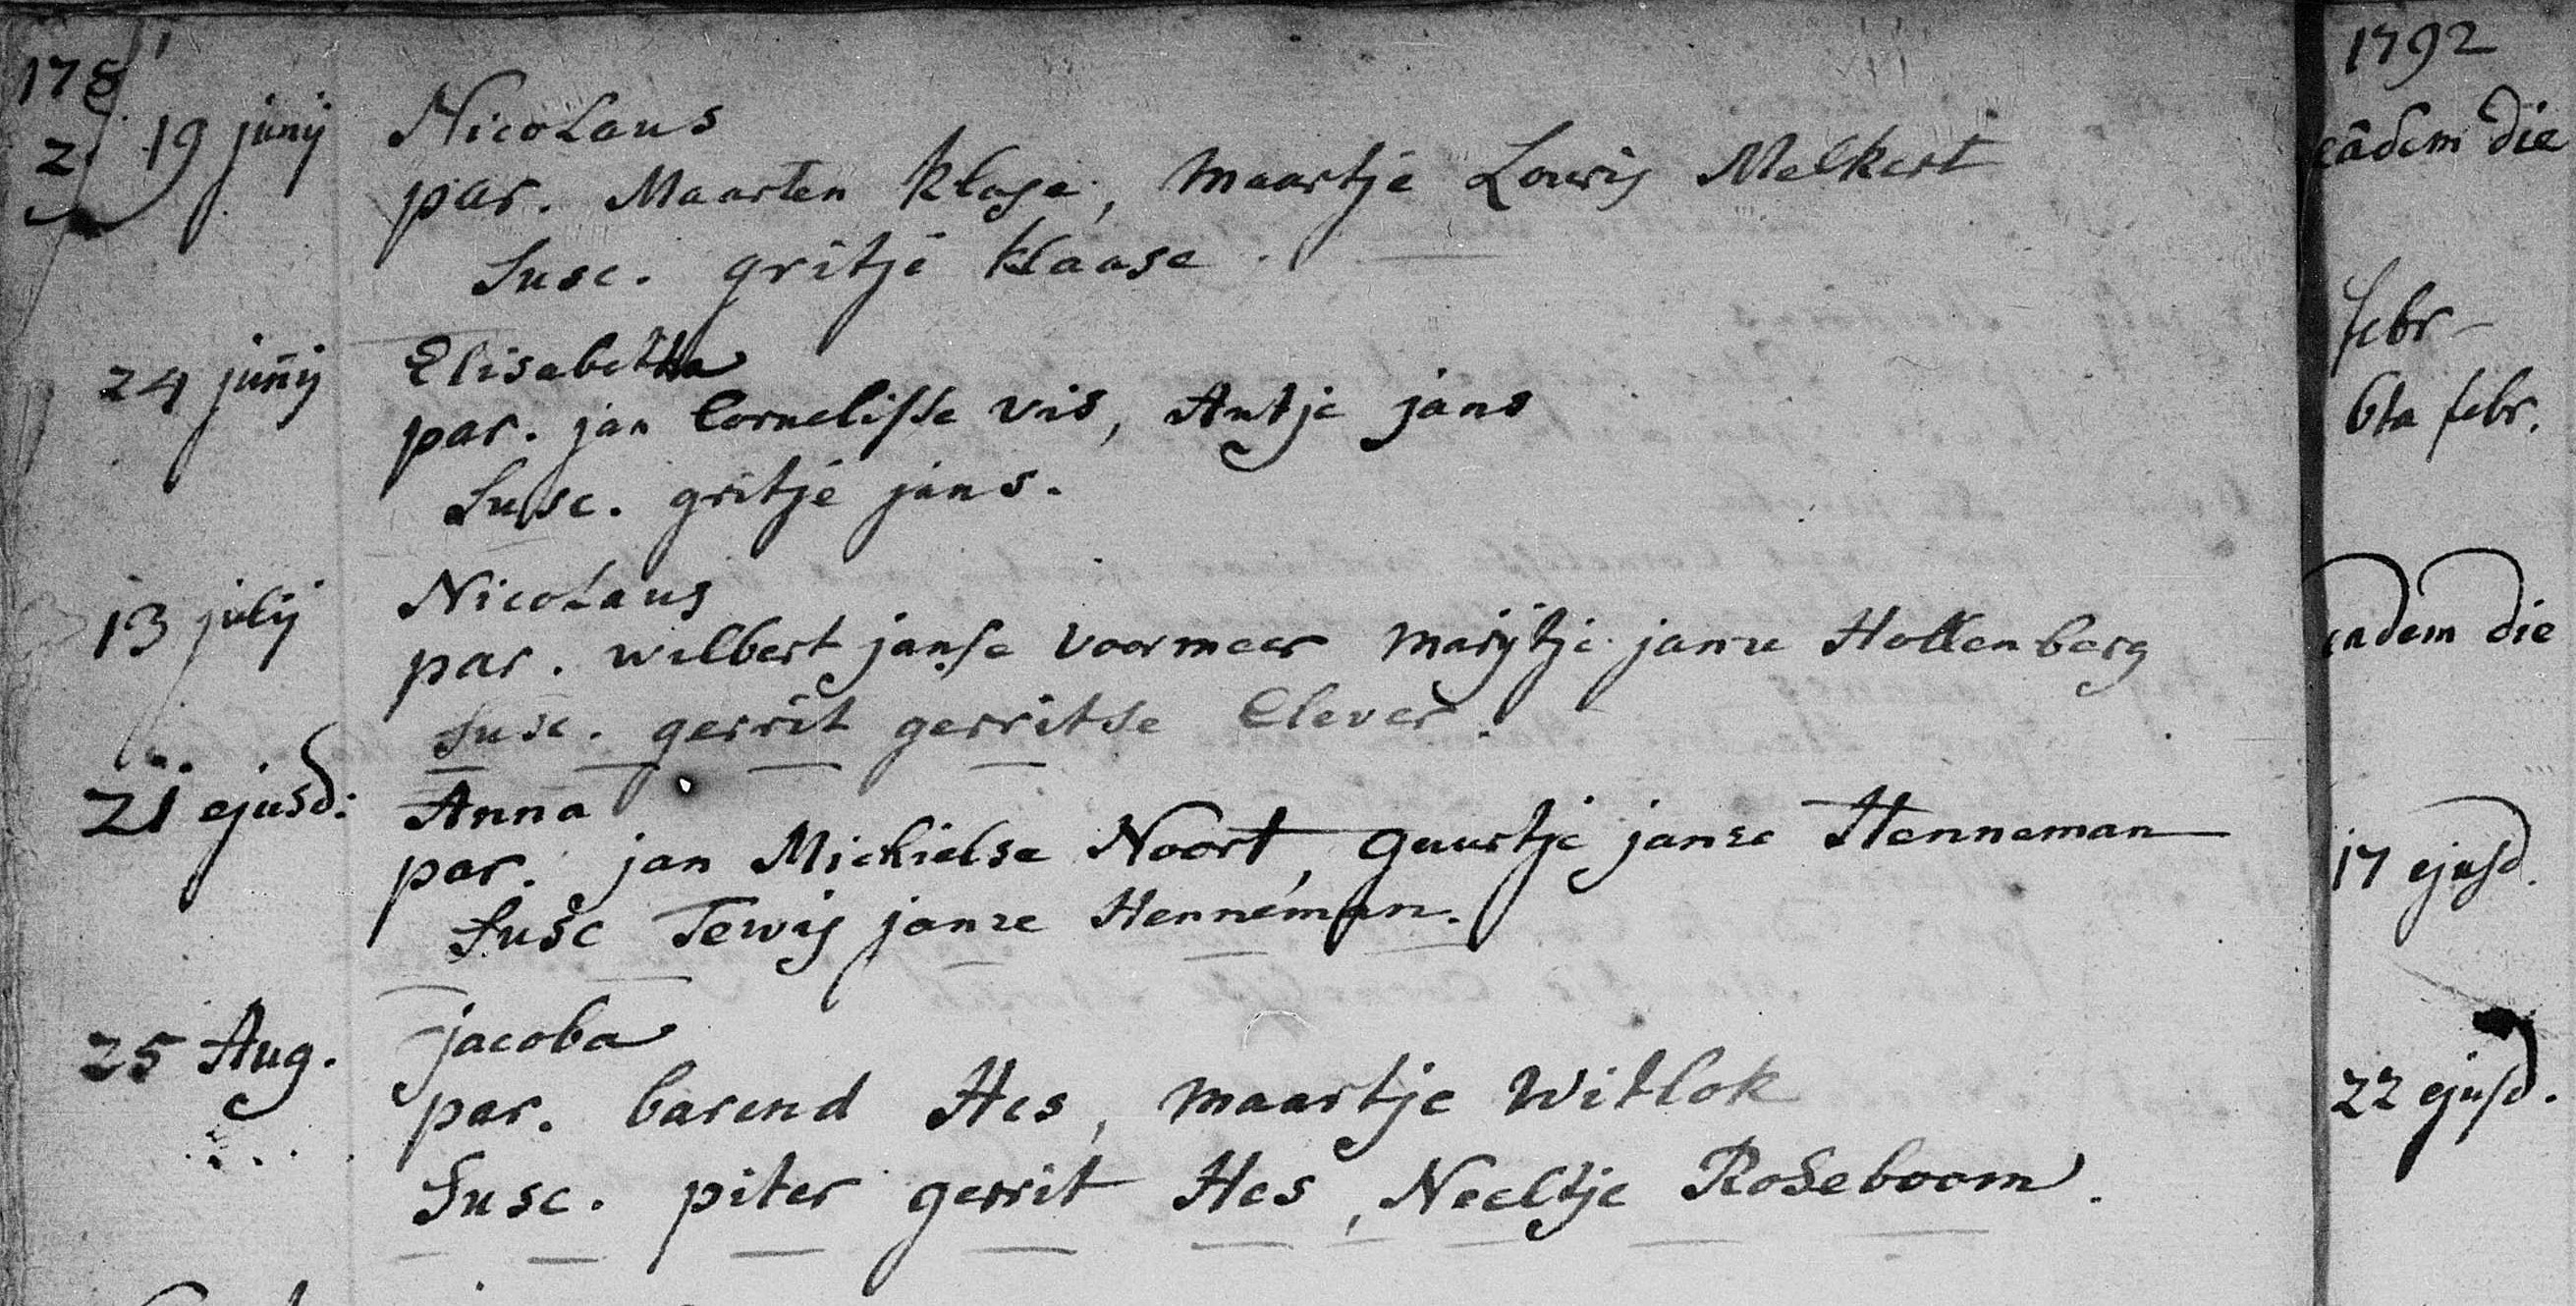 19 junij Nicolaus
par. Maarten Klase, Maartje Louris Melkert
Susc. gritje klaase.
24 junij Elisabetha
par. jan Cornelisse vis, Antje jans
Susc. gritje jans.
13 julij Nicolaus
par. wilbert janse Voormeer Marijtje janze Hottenberg
Susc. gerrit gerritse Clever.
21 ejusd: Anna
par. jan Michielse Noort, guurtje janze Henneman
Susc Tewis janze Henneman.
25 Aug. jacoba
par. barend Hes, maartje Witlok
Susc. piter gerrit Hes, Neeltje Roseboom.
1792
eâdem die
febr
6ta febr.
eadem die
17 ejusd.
22 ejusd.